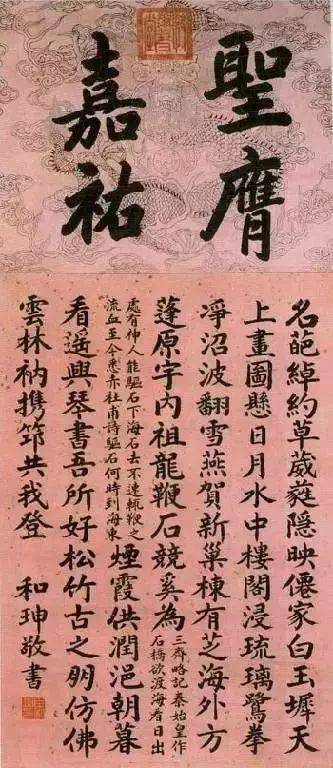 聖膺
嘉祐
名葩綽約草葳蕤隱映僊家白玉墀天
上畫圖懸日月水中樓閣浸琉璃鷺拳
凈沼波翻雪燕賀新巢棟有芝海外方
蓬原宇內祖龍鞭石競奚為
三齊略記秦始皇作
石橋欲渡海看日出
處有神人能驅石下海石去不速輒鞭之
流血至今悉赤杜甫詩驅石何時到海東
煙霞供潤浥朝暮
看遙興琴書吾所好松竹古之朋仿佛
雲林衲携筇共我登
和珅敬書